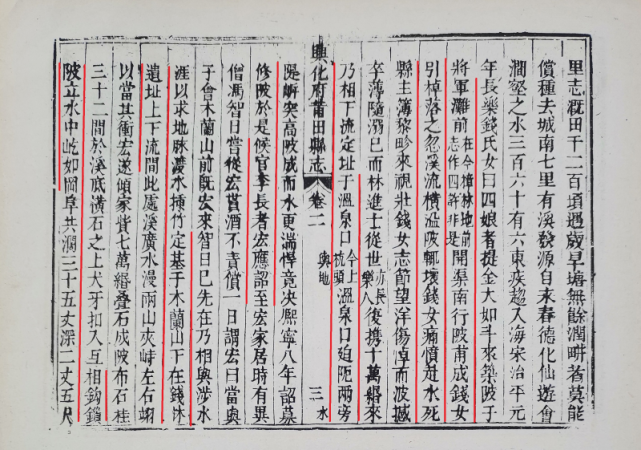 里志溉田千二百頃遇歲旱塘無餘潤畊者莫能
償種去城南七里有溪發源自永春德化仙遊會
澗壑之水三百六十有六東疾趨入海宋治平元
年長樂錢氏女曰四娘者提金大如斗來築陂于
將軍灘前在今樟林地前志作四許非是開渠南行陂甫成錢女
引棹落之忽溪流橫溢陂輒壞錢女痛憤赴水死
縣主簿黎畛來視壯錢女志節望洋傷悼而波撼
卒薄隨溺已而林進士從世亦長樂人復携十萬緡來
乃相下流定址于溫泉口今上杭頭與地溫泉口迫阨兩旁
興化府莆田縣志 卷二 三 水
隄嶄突高陂成而水更湍悍竟決熙寧八年詔募
修陂於是候官李長者宏應詔至宏家居時有異
僧馮智日當從宏貰酒不責償一日謂宏曰當與
子會木蘭山前旣宏來智日已先在乃相與涉水
涯以求地脉濃水揷竹定基于木蘭山下在錢林
遺址上下流間此處溪廣水漫兩山夾峙左右翊
以當其衝宏遂傾家貲七萬緡疊石成陂布石柱
三十二間於溪底橫石之上犬牙扣入互相鈎鎖
陂立水中屹如岡阜共濶三十五丈深二丈五尺